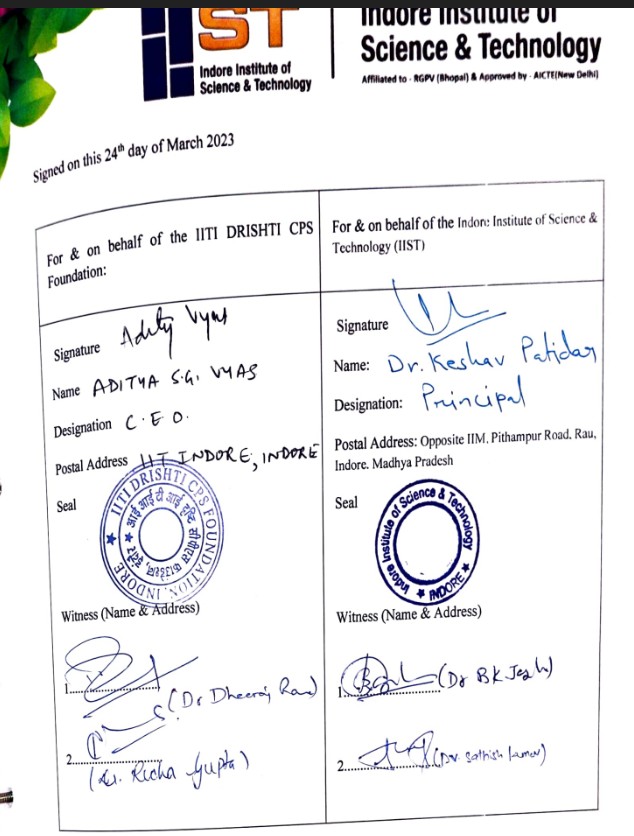 IST
Indore Institute of
Science & Technology
Indore Institute of
Science & Technology
Affiliated to - RGPV (Bhopal) & Approved by - AICTE(New Delhi)
Signed on this 24th day of March 2023
For & on behalf of the IITI DRISHTI CPS
Foundation:
Signature Aditya Vyas
Name ADITYA S.G. VYAS
Designation C.E.O.
Postal Address IIT INDORE, INDORE
Seal
IITI DRISHTI CPS FOUNDATION, INDORE
Witness (Name & Address)
1.
(Dr Dheeraj
2.
Richa Gupta)
For & on behalf of the Indore Institute of Science &
Technology (IIST)
Signature
Name: Dr. Keshav Patidar
Designation: Principal
Postal Address: Opposite IIM, Pithampur Road, Rau,
Indore, Madhya Pradesh
Seal
Indore Institute of Science & Technology
INDORE
Witness (Name & Address)
1. (Dr BK
2. (Dr. Sathish